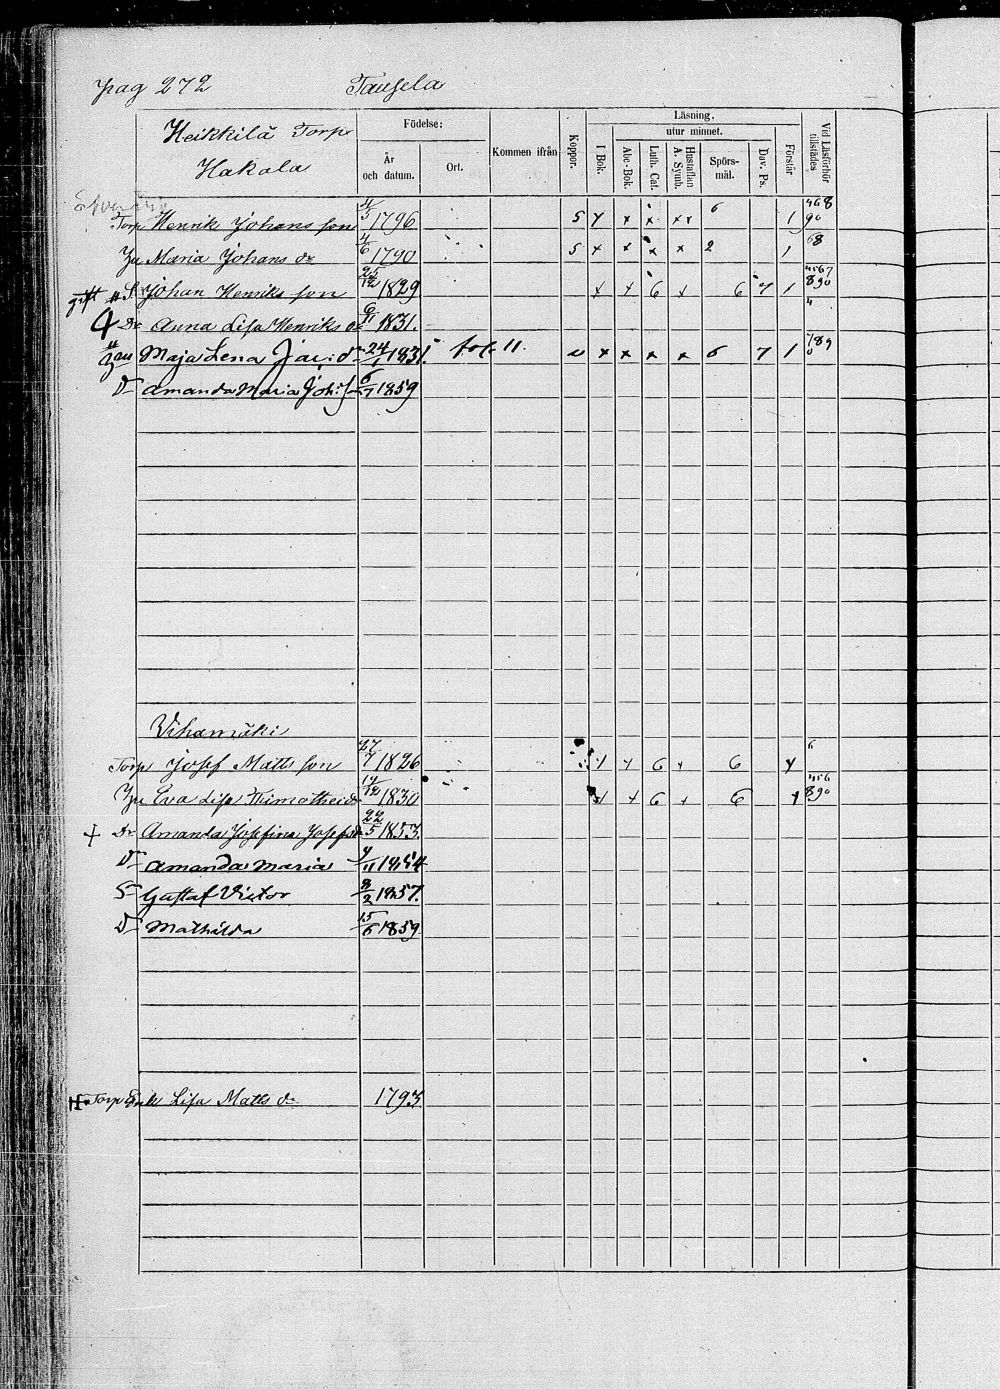 pag 272 Taufela
Heikkilä Torp
Hakala
Födelse:
År och datum.
Ort.
Kommen ifrån
Koppor.
Läsning,
utur minnet.
I Bok.
Abc-Bok.
Luth. Cat.
Hustaflan A. Symb.
Spörs-mål.
Dav. Ps.
Förstår
Vid Läsförhör tillstädes
Torp Henrik Johans son 4/5 1796 5 x x x xx 6 1 468 90
Hu Maria Johans dr 4/6 1790 5 x x x x 2 1 68
gift S. Johan Henriks son 25/12 1829 x x 6 x 6 7 1 4567 890
Dr Anna Lisa Henriks dr 6/11 1831. 4
Maja Lena 24/1 1831. fol. 11. x x x x 6 7 1 789
Dr Amanda Maria 6/7 1859
Vihamäki
Torp Josef Matts son 27/7 1826 1 x 6 x 6 6
Hu Eva Lisa Timothei dr 14/12 1830 x x 6 x 6 456 890
+ Dr Amanda Josefina Josefs dr 22/5 1853.
Dr Amanda Maria 4/11 1854
S Gustaf Victor 8/2 1857.
Dr Mathilda 15/6 1859
Torp Enk Lisa Matts dr 1793